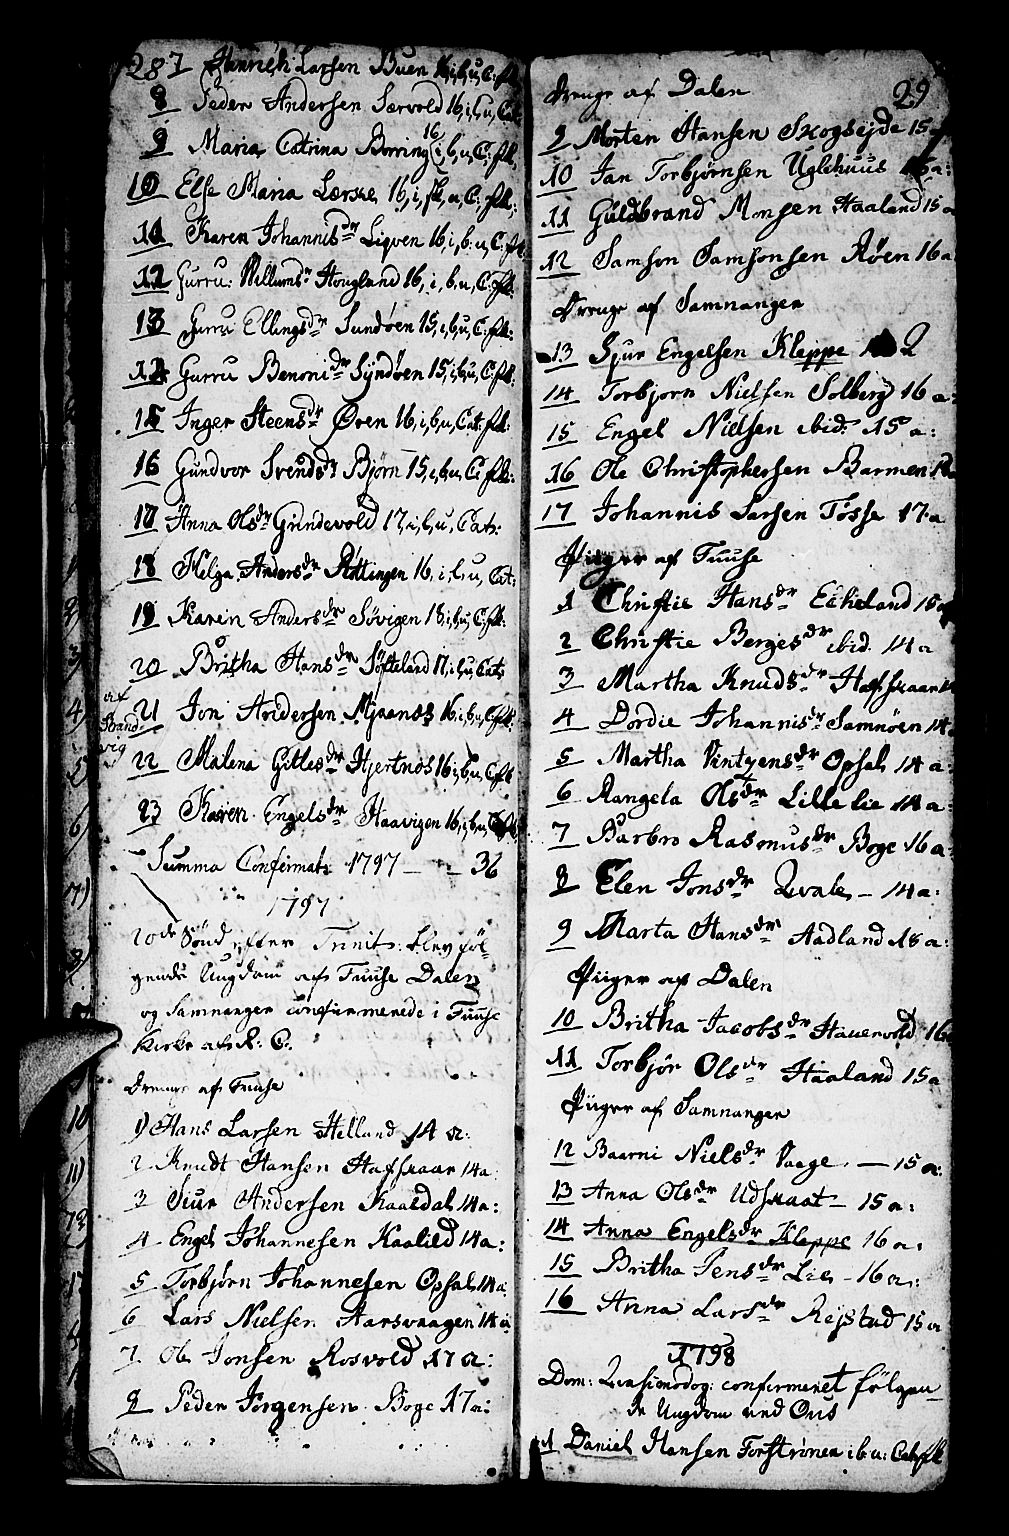 28
7 Henrich Larsen Buen 16, i, b, u, C: flk
8 Peder Andersen Særvold 16, i, b, u, Cat:
9 Maria Catrina Borring 16 i, b, u, C: flk:
10 Else Maria Lærske 16, i, fl, u, C: flk:
11 Karen Johannisdr Liqven 16, i, b: u, C: flk
12 Gurru Willumsdr Hougland 16, i, b, u, C: flk:
13 Gurru Ellingsdr Sundøen 15, i, b, u, C: flk:
14 Gurru Benonidr Syndøen 15, i, b, u, C: flk:
15 Inger Steensdr Øren 16, i, b, u, Cat: flk:
16 Gundvor Svendsdr Bjørn 15, i, b, u, C: flk:
17 Anna Olsdr Grindevold 17, i, b, u, Cat:
18 Helga Andersdr Røttingen 16, i, b, u, Cat:
19 Karen Andersdr Søvigen 18, i, b, u, C: flk:
20 Britha Hansdr Søfteland 17, i, b, u, Cat:
af Strandvig
21 Jon Andersen Mjaanes 16 i, b, u, C: flk:
22 Malena Gitlesdr Hjertnøs 16 i, b, u, C: flk
23 Karen Engelsdr Haavigen 16, i, b, u, C: flk
Summa Confirmat: 1797 — — 36
1797
20de Sønd efter Trinit: blev føl-
gende Ungdom af Fuuse Dalen
og Samnanger confirmerede i Fuuse
Kirke af R: C:
Drenge af Fuuse
1) Hans Larsen Helland 14 a:
2 Knudt Hansen Hafskaar 14 a
3 Siur Andersen Kaaldal 14 a:
4 Engel Johannesen Kaalild 14 a:
5 Torbjørn Johannesen Opsal 14 a:
6 Lars Nielsen Aarsvaagen 14 a:
7 Ole Jonsen Rosvold 17 a:
8 Peder Jørgensen Boge 17 a:
Drenge af Dalen
29
9 Morten Hansen Skogseyde 15 a
10 Jan Torbjørnsen Uglehuus 16 a:
11 Guldbrand Monsen Haaland 15 a
12 Samson Samsonsen Røen 16 a
Drenge af Samnangen
13 Sjur Engelsen Kleppe
14 Torbjorn Nielsen Solberg 16 a:
15 Engel Nielsen ibid: 15 a:
16 Ole Christophersen Barmen
17 Johannis Larsen Tøsse 17 a
Piiger af Fuuse
1 Christie Hansdr Eekeland 15 a
2 Christie Bergesdr ibid 14 a
3 Martha Knudsdr Hafskaar
4 Dordie Johannisdr Samnøen 14
5 Martha Vintzensdr Opsal 14 a:
6 Rangela Olsdr Lillelie 14 a:
7 Barbro Rasmusdr Boge 16 a:
8 Elen Jonsdr Qvale — 14 a:
9 Marta Hansdr Aadland 15 a:
Piiger af Dalen
10 Britha Jacobsdr Hauervold 16
11 Torbjør Olsdr Haaland 15 a
Piiger af Samnangen
12 Baarni Nielsdr Vaage — 15 a:
13 Anna Olsdr Udskaat — 15 a:
14 Anna Engelsdr Kleppe 16 a:
15 Britha Jensdr Lie — 16 a:
16 Anna Larsdr Rejstad 15 a
1798
Dom: Quasimodog: confirmeret følgen-
de Ungdom ved Ous
1 Daniel Hansen Forstrønen i b: u: Cat: flk